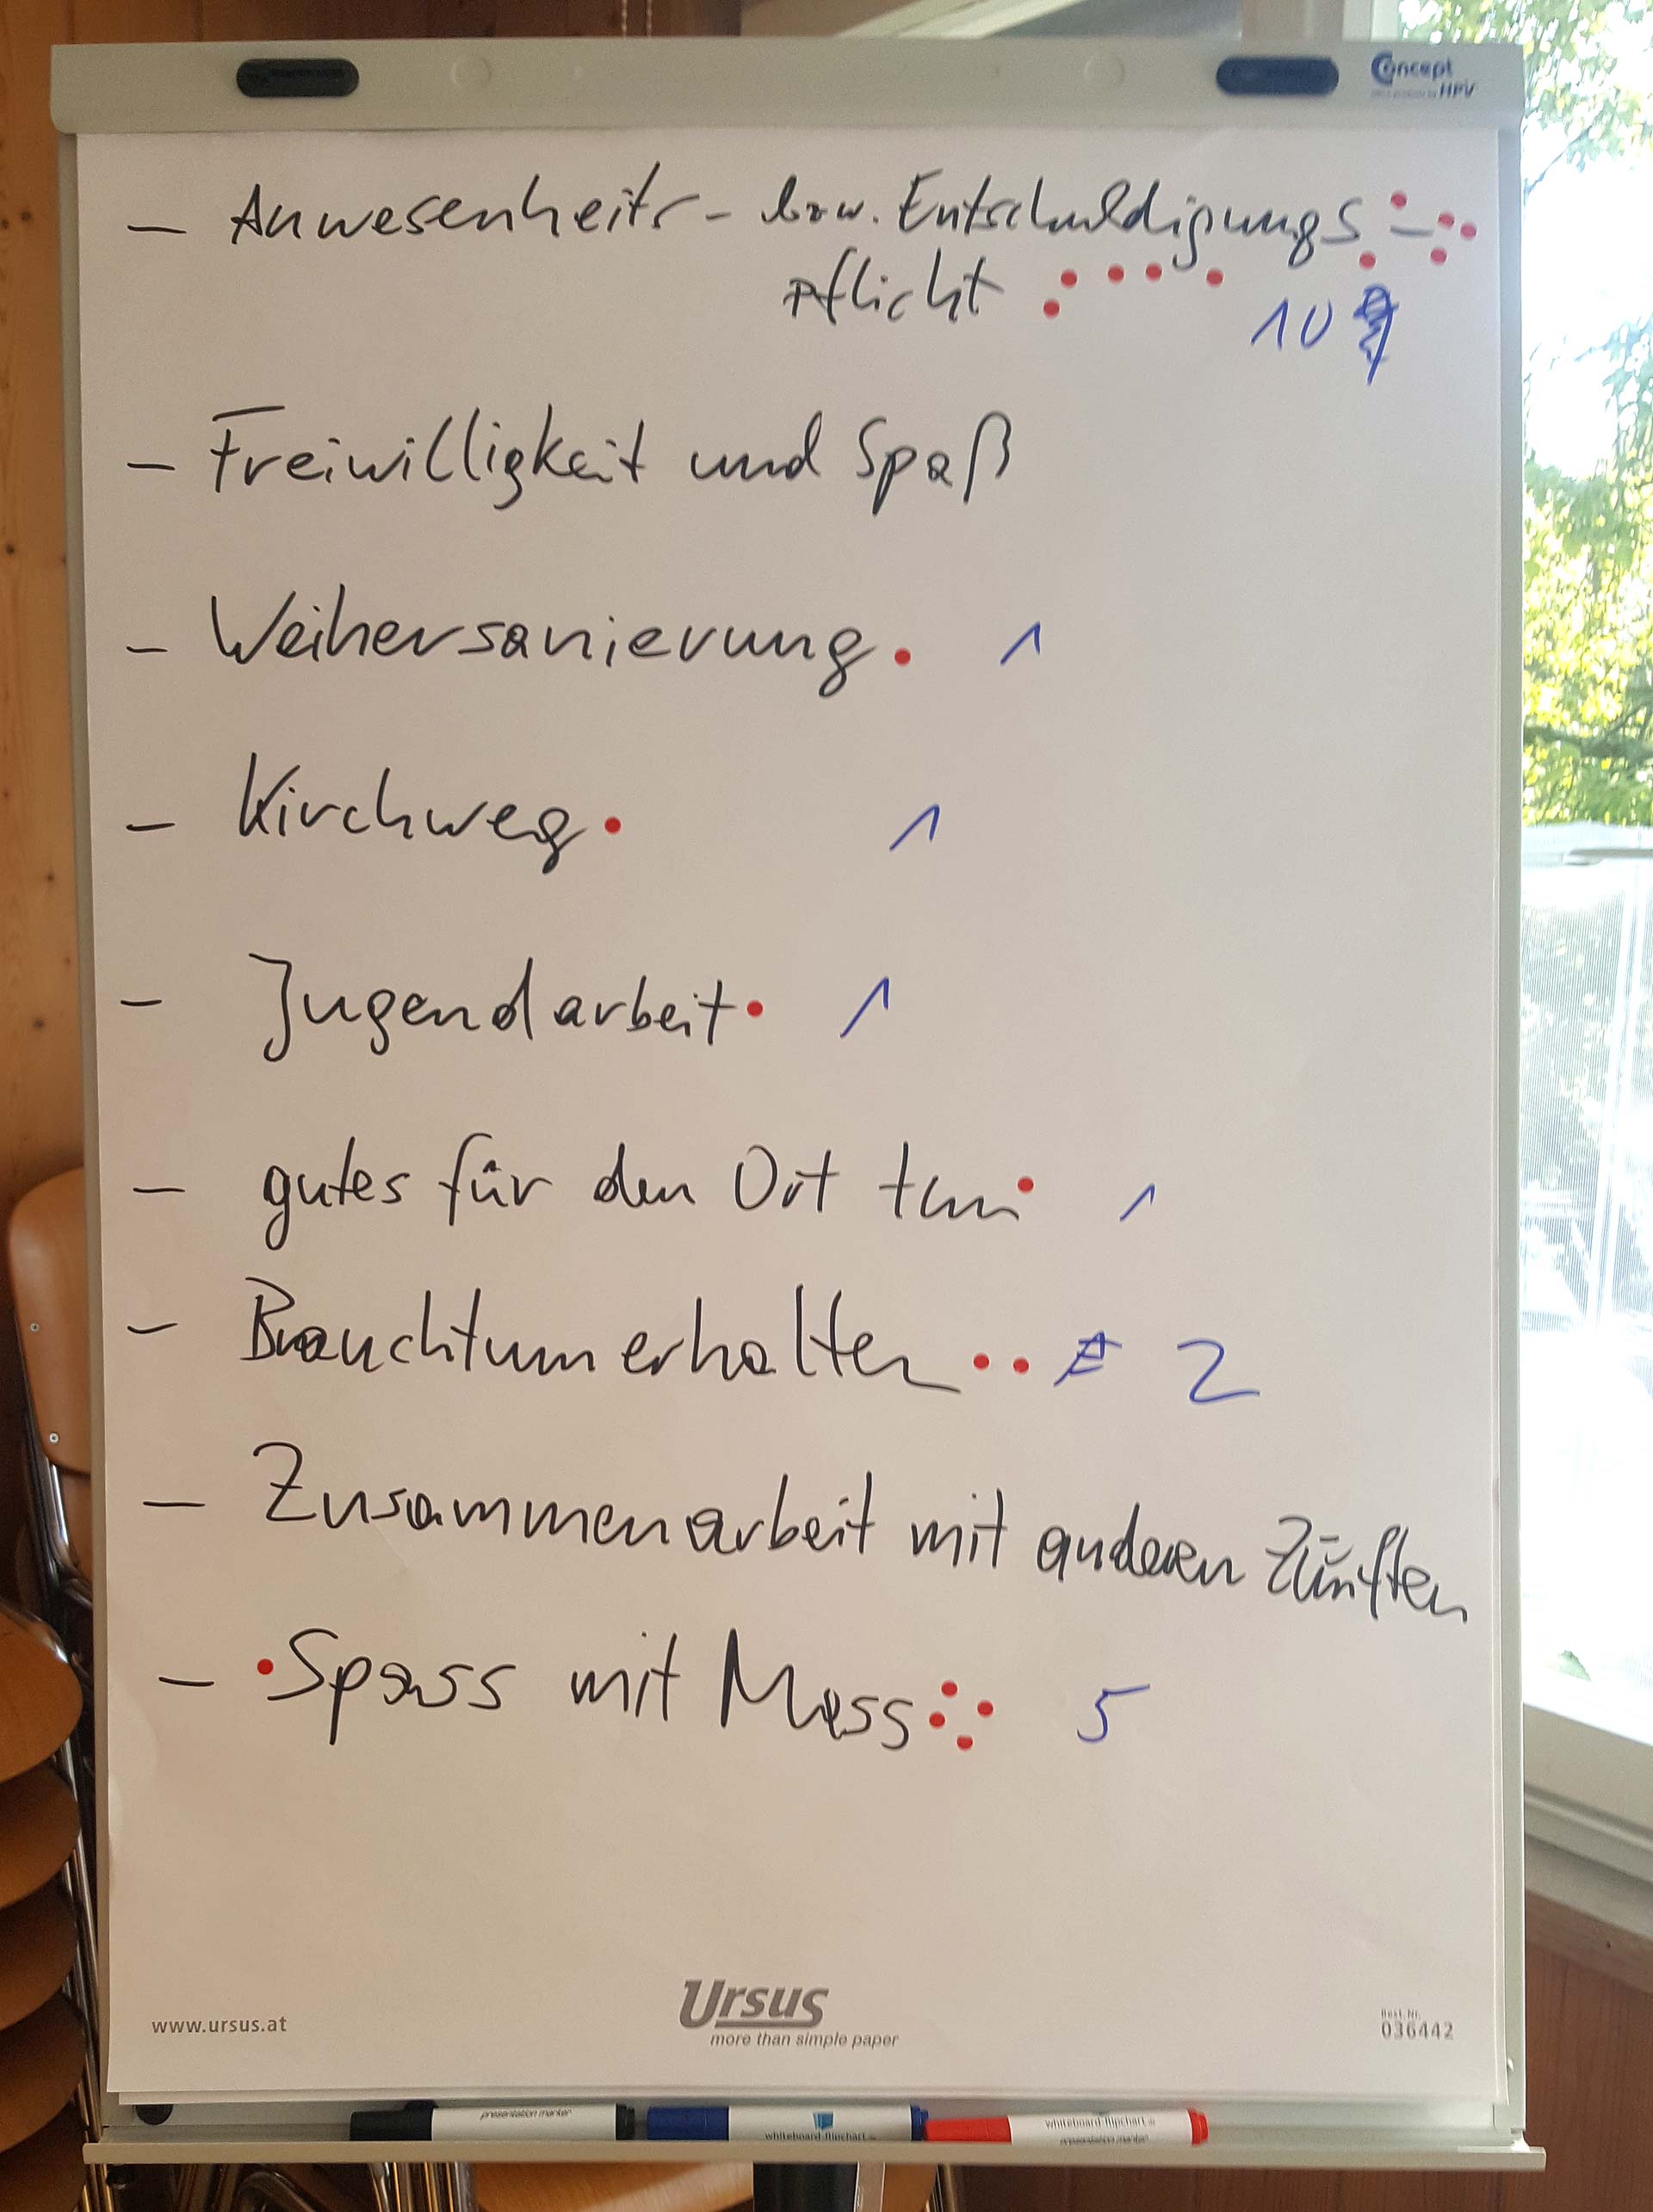 Concept
HPV
– Anwesenheits- bzw. Entschuldigungs-
pflicht
10
– Freiwilligkeit und Spaß
– Weihersanierung 1
– Kirchweg 1
– Jugendarbeit 1
– gutes für den Ort tun 1
– Brauchtum erhalten 2
– Zusammenarbeit mit anderen Zünften
– Spass mit Mass 5
www.ursus.at
Ursus
more than simple paper
Best.Nr.
036442
presentation marker
whiteboard-flipchart
whiteboard-flipchart
presentation marker